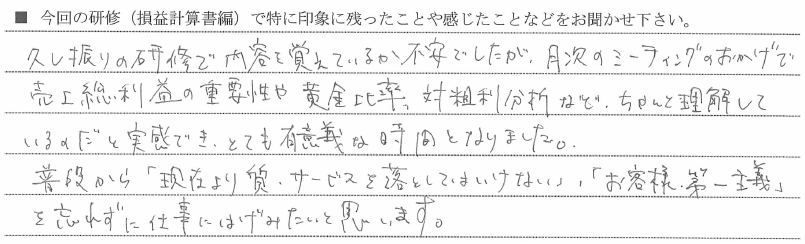 ■ 今回の研修（損益計算書編）で特に印象に残ったことや感じたことなどをお聞かせ下さい。
久し振りの研修で内容を覚えているか不安でしたが、月次のミーティングのおかげで
売上総利益の重要性や黄金比率、対粗利分析など、ちゃんと理解して
いるのだと実感でき、とても有意義な時間となりました。
普段から「現在より質・サービスを落としてはいけない」、「お客様第一主義」
を忘れずに仕事にはげみたいと思います。